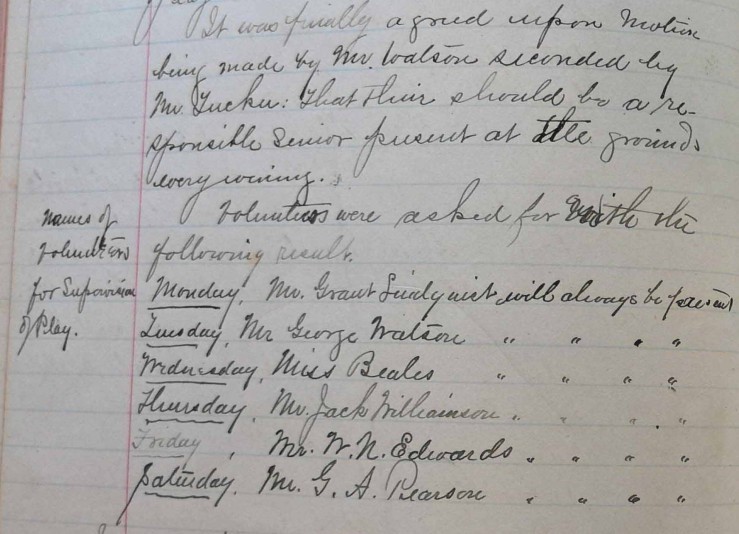 It was finally agreed upon Motion
being made by Mr. Watson seconded by
Mr. Tucker: That their should be a re-
sponsible Senior present at the grounds
every evening.
Names of
Volunteers
for Supervision
of Play.
Volunteers were asked for with the
following result.
Monday, Mr. Grant Lindquist will always be present
Tuesday, Mr George Watson " " " "
Wednesday, Miss Beales " " " "
Thursday, Mr. Jack Williamson " " " "
Friday, Mr. W. N. Edwards " " " "
Saturday. Mr. G. A. Pearson " " " "